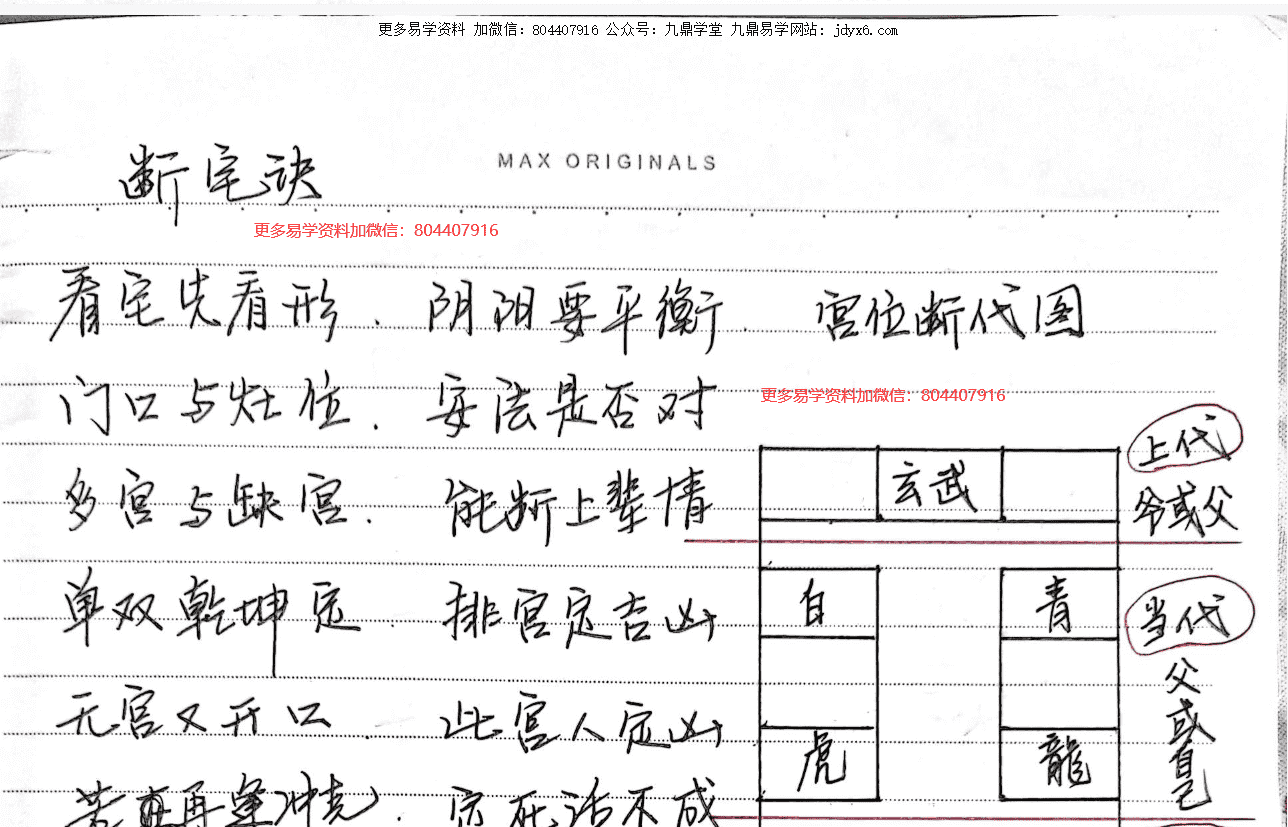 更多易学资料 加微信：804407916 公众号：九鼎学堂 九鼎易学网站：jdyx6.com
MAX ORIGINALS
断宅诀
更多易学资料加微信：804407916
看宅先看形．阴阳要平衡．
门口与灶位．安法是否对
多宫与缺宫．能断上辈情
单双乾坤定 排宫定吉凶
无宫又开口．此宫人定凶
若再逢冲克．死活不成
宫位断代图
更多易学资料加微信：804407916
玄武
上代
爷或父
白
青
当代
父或自己
虎
龍